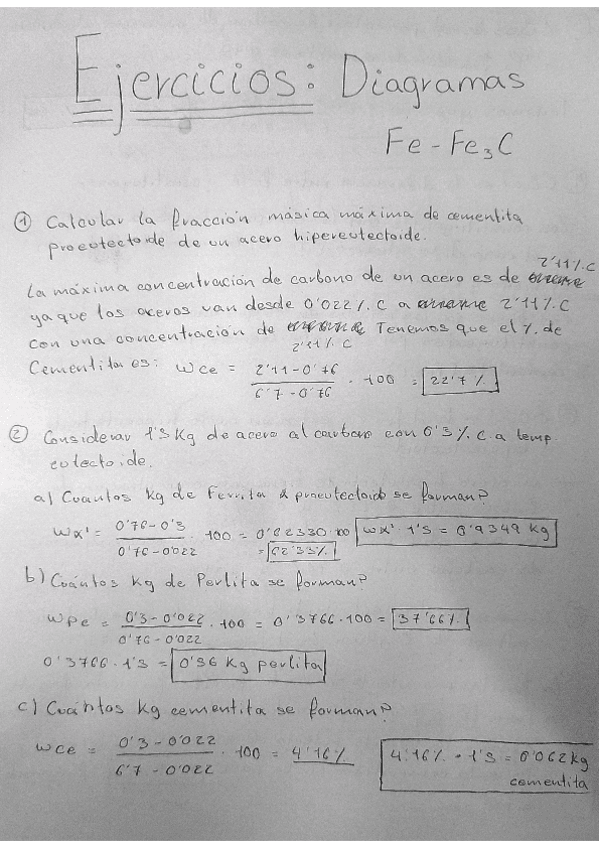 Ejercicios: Diagramas
Fe - Fe₃C
① Calcular la fracción másica máxima de cementita
proeutectoide de un acero hipereutectoide.
2'11% C
La máxima concentración de carbono de un acero es de
ya que los aceros van desde 0'022%. C a 2'11%. C
con una concentración de Tenemos que el %. de
2'11%. C
Cementita es: Wce = (2'11-0'76)/(6'7-0'76) · 100 = 22'7%
② Considerar 1'5 Kg de acero al carbono con 0'3%. C. a temp.
eutectoide.
a) Cuantos Kg de Ferrita α proeutectoide se forman?
Wα' = (0'76-0'3)/(0'76-0'022) · 100 = 0'62330·100 = 62'33% Wα' · 1'5 = 0'9349 Kg
b) Cuántos Kg de Perlita se forman?
Wpe = (0'3-0'022)/(0'76-0'022) · 100 = 0'3766·100 = 37'66%
0'3766 · 1'5 = 0'56 Kg perlita
c) Cuántos Kg cementita se forman?
Wce = (0'3-0'022)/(6'7-0'022) · 100 = 4'16% 4'16% · 1'5 = 0'062 kg
cementita